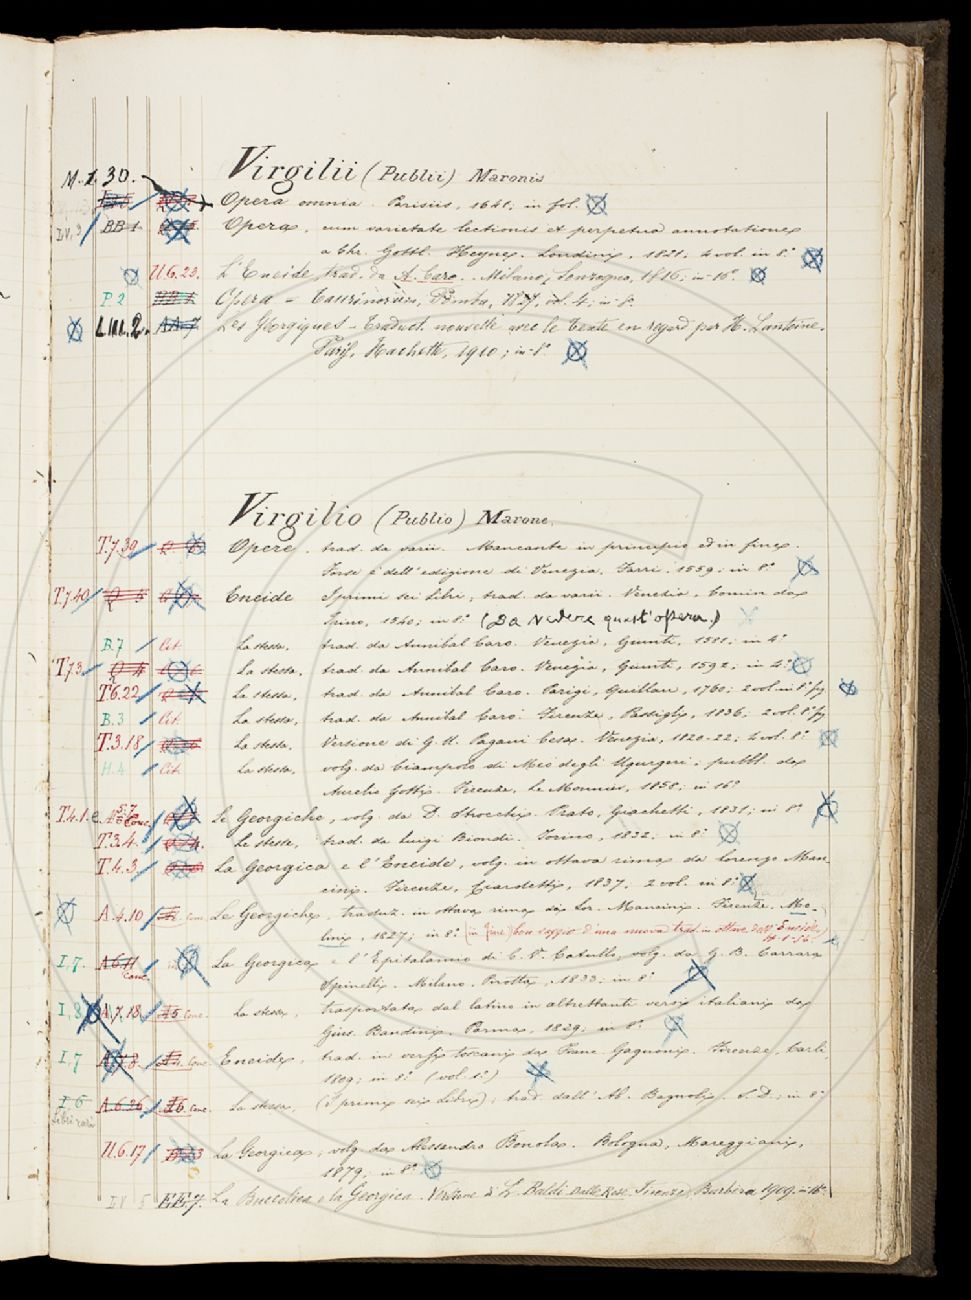 M.1.30. Virgilii (Publii) Maronis
Opera omnia. Parisiis, 1641; in fol.
BB 1 Opera, cum varietate lectionis et perpetua annotatione
a Chr. Gottl. Heyne. Londini, 1821; 4 vol. in 8.°
U.6.23. L'Eneide trad. da A. Caro. Milano, Sonzogno, 1916; in-16.°
P.2 Opera = Taurinorum, Pomba, vol. 4; in 8.°
L.III.2. AA-7 Les Géorgiques - Traduct. nouvelle avec le texte en regard par H. Lantoine.
Paris, Hachette, 1910; in-8.°
Virgilio (Publio) Marone.
T.7.39 Opere. trad. da varii. Mancante in principio ed in fine.
Forse è dell'edizione di Venezia, Farri, 1559; in 8.°
T.7.40 Eneide I primi sei libri, trad. da varii. Venezia, Comin da
Trino, 1540; in 8.° (Da vedere quest'opera!)
B.7 Cit. La stessa, trad. da Annibal Caro. Venezia, Giunti, 1581; in 4.°
T.7.3 Q 4 La stessa, trad. da Annibal Caro. Venezia, Giunti, 1592; in 4.°
T.6.22 La stessa, trad. da Annibal Caro. Parigi, Quillau, 1760; 2 vol. in 8.° fig.
B.3 Cit. La stessa, trad. da Annibal Caro. Firenze, Battigli, 1836; 2 vol. 8.° fig.
T.3.18 La stessa, Versione di G. U. Pagani Cesa. Venezia, 1820-22; 4 vol. 8.°
H.4 Cit. La stessa, volg. da Ciampolo di Meo degli Ugurgeri; pubbl. da
Aurelio Gotti. Firenze, Le Monnier, 1858; in 16.°
T.4.1. Le Georgiche, volg. da D. Strocchi. Prato, Giachetti, 1831; in 8.°
T.3.4. Le stesse, trad. da Luigi Biondi. Torino, 1832; in 8.°
T.4.3 La Georgica e l'Eneide, volg. in ottava rima da Lorenzo Man-
cini. Firenze, Ciardetti, 1837; 2 vol. in 8.°
A.4.10 Le Georgiche, traduz. in ottava rima di Lor. Mancini. Firenze, Mo-
lini, 1827; in 8.° (in fine) Con saggio d'una nuova trad. in ottave dell'Eneide
I,7. A.6.11 Conc. La Georgica e l'Epitalamio di C. V. Catullo, volg. da G. B. Carrara
Spinelli. Milano, Pirotta, 1833; in 8.°
I,8 A.7.18 A5 Conc. La stessa, trasportata dal latino in altrettanti versi italiani da
Gius. Bandini. Parma, 1829; in 8.°
I,7 Eneide, trad. in versi toscani da Franc. Gagnoni. Firenze, Carli,
1809; in 8.° (vol. 1.°)
I,6 A.6.26 A6. Conc. La stessa, (I primi sei libri), trad. dall'Ab. Bagnoli. S. D.; in 8.°
Libri rari
U.6.17 La Georgica, volg. da Alessandro Bonola. Bologna, Mareggiani,
1879; in 8.°
IV 5 EE.7. La Buccolica e la Georgica. Versione di L. Baldi Dalle Rose. Firenze, Barbèra 1909. in-16.°